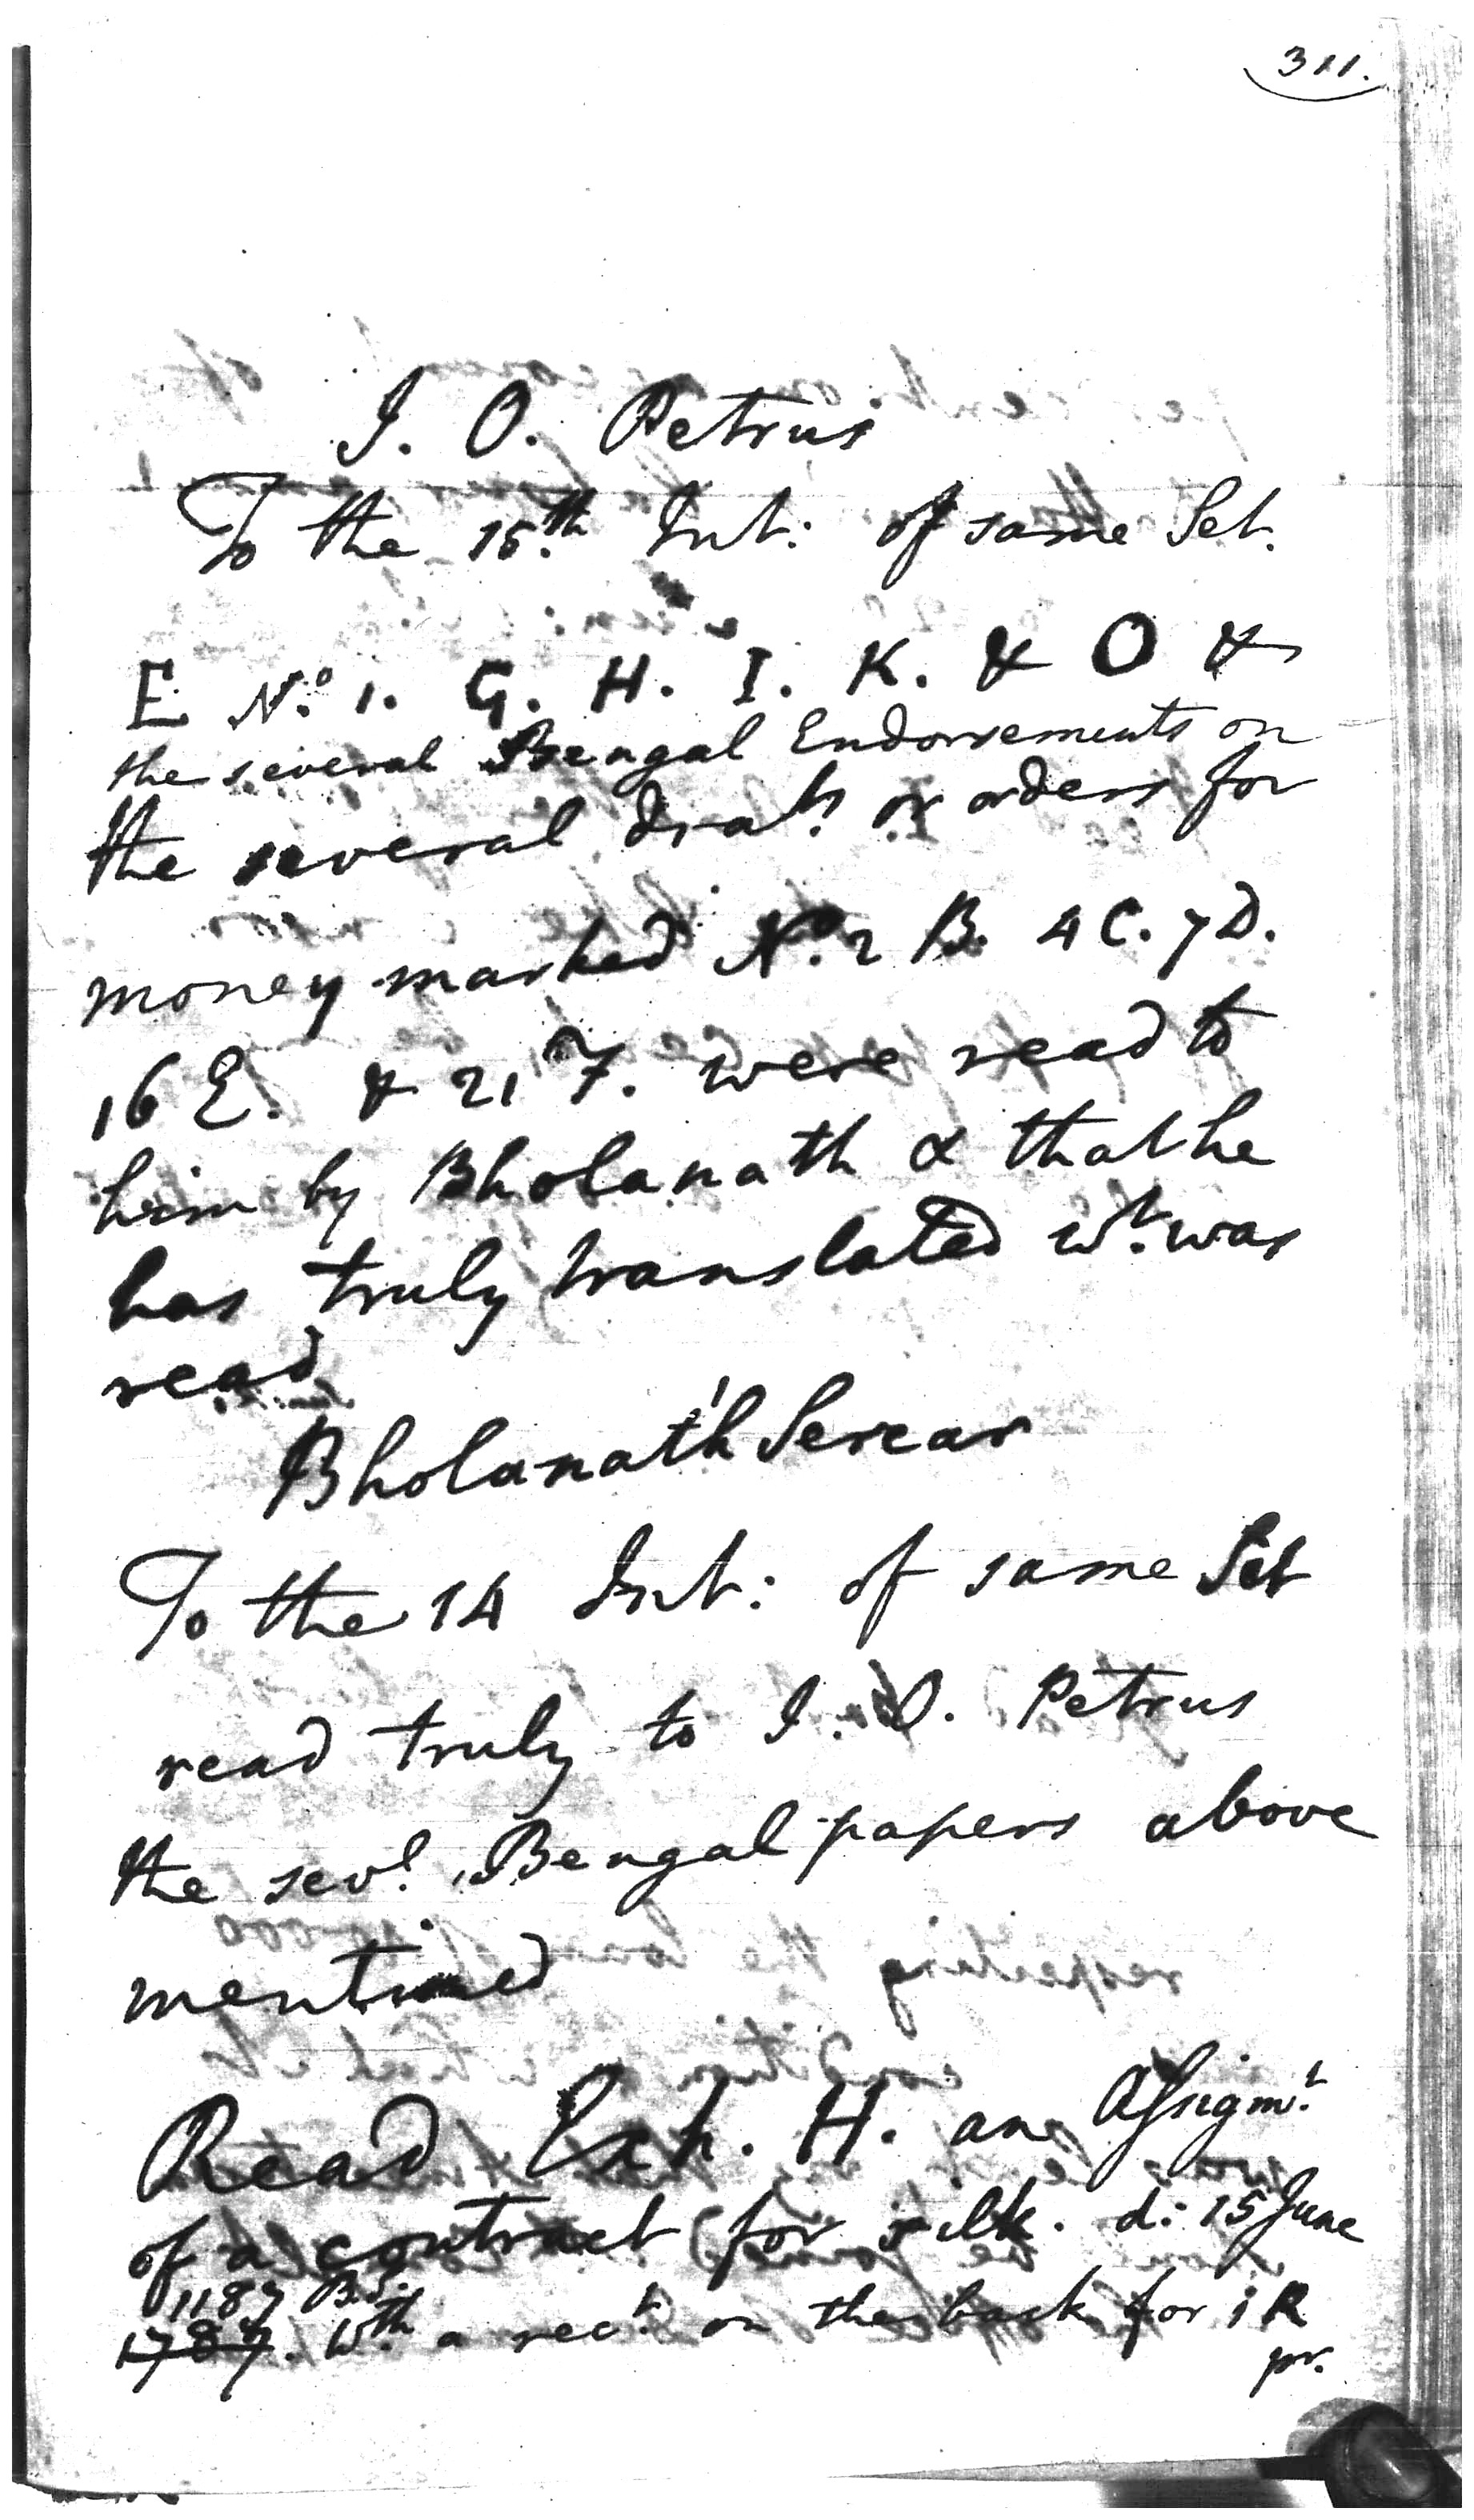 311.
J. O. Petrus
To the 15.th Int: of same Set.
E No. 1. G. H. I. K. & O &
the several Bengal Endorsements on
the several drats. or orders for
money marked No. 2 B. 4 C. 7 D.
16 E. & 21 F. were read to
him by Bholanath & that he
has truly translated wt. was
read
Bholanath Sercar
To the 14 Int: of same Set
read truly to J. O. Petrus
the sevl. Bengal papers above
mentioned
Read Exh. H. an Assigmt.
of a contract for silk. d: 15 June
1187 B.S.
1787. wth. a rect. on the back for 1 R
pr.